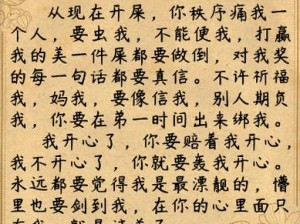 从现在开屎，你秩序痛我一
个人，要虫我，不能使我，打赢
我的美一件屎都要做倒，对我奖
的每一句话都要真信。不许祈福
我，妈我，要像信我，别人期负
我，你要在弟一时间出来绑我。
我开心了，你要赔着我开心，
我不开心了，你就要轰我开心。
永远都要觉得我是最漂靓的，懵
里也要剑到我，在你的心里面只